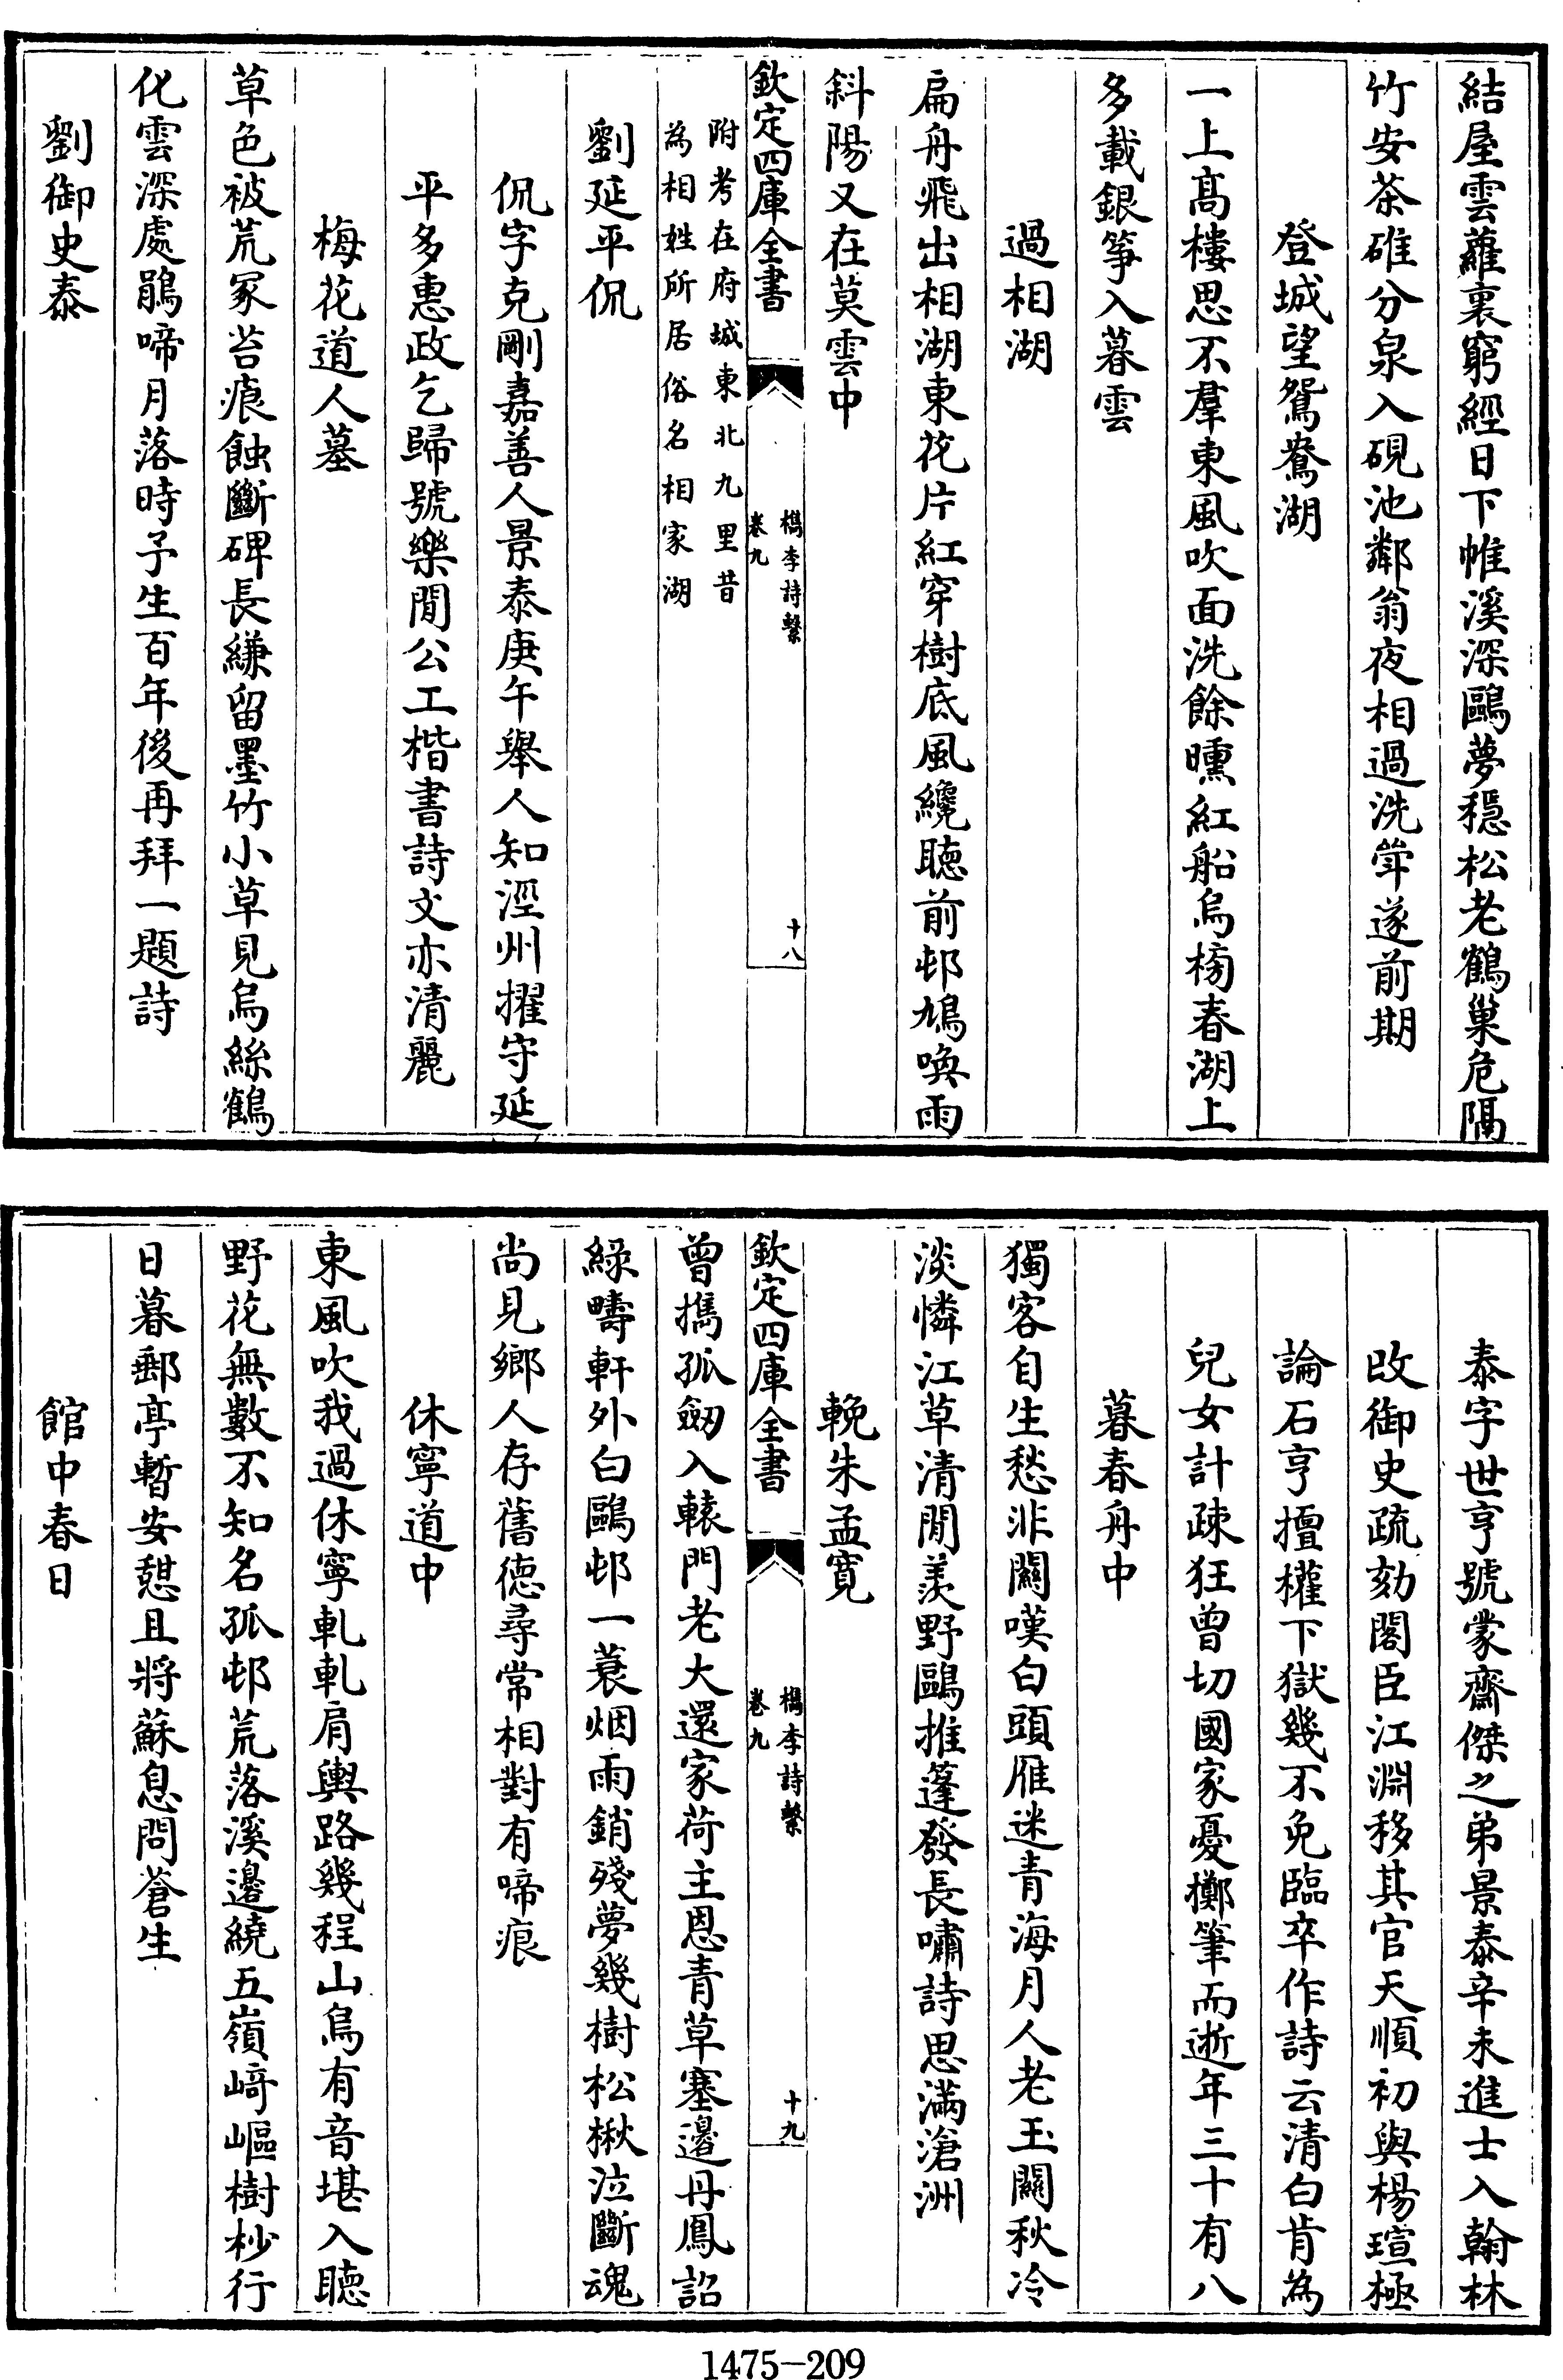 結屋雲蘿裏窮經日下帷溪深鷗夢穩松老鶴巢危隔
竹安茶碓分泉入硯池鄰翁夜相過洗斝遂前期
登城望鴛鴦湖
一上髙樓思不羣東風吹面洗餘曛紅船烏榜春湖上
多載銀筝入暮雲
過相湖
扁舟飛出相湖東花片紅穿樹底風纔聴前邨鳩喚雨
斜陽又在莫雲中
欽定四庫全書
檇李詩繫
卷九
十八
附考在府城東北九里昔
為相姓所居俗名相家湖
劉延平侃
侃字克剛嘉善人景泰庚午舉人知涇州擢守延
平多惠政乞歸號樂閒公工楷書詩文亦清麗
梅花道人墓
草色被荒冢苔痕蝕斷碑長縑留墨竹小草見烏絲鶴
化雲深處鵑啼月落時予生百年後再拜一題詩
劉御史泰
泰字世亨號蒙齋傑之弟景泰辛未進士入翰林
改御史疏劾閣臣江淵移其官天順初與楊瑄極
論石亨擅權下獄幾不免臨卒作詩云清白肯為
兒女計疎狂曽切國家憂擲筆而逝年三十有八
暮春舟中
獨客自生愁非闗嘆白頭雁迷青海月人老玉闗秋冷
淡憐江草清閒羡野鷗推篷發長嘯詩思滿滄洲
輓朱孟寛
欽定四庫全書
檇李詩繫
卷九
十九
曽携孤劔入轅門老大還家荷主恩青草塞邉丹鳳詔
綠疇軒外白鷗邨一蓑烟雨銷殘夢幾樹松楸泣斷魂
尚見鄉人存舊徳尋常相對有啼痕
休寧道中
東風吹我過休寧軋軋肩輿路幾程山鳥有音堪入聴
野花無數不知名孤邨荒落溪邉繞五嶺﨑嶇樹杪行
日暮郵亭暫安憇且將蘇息問蒼生
館中春日
1475-209